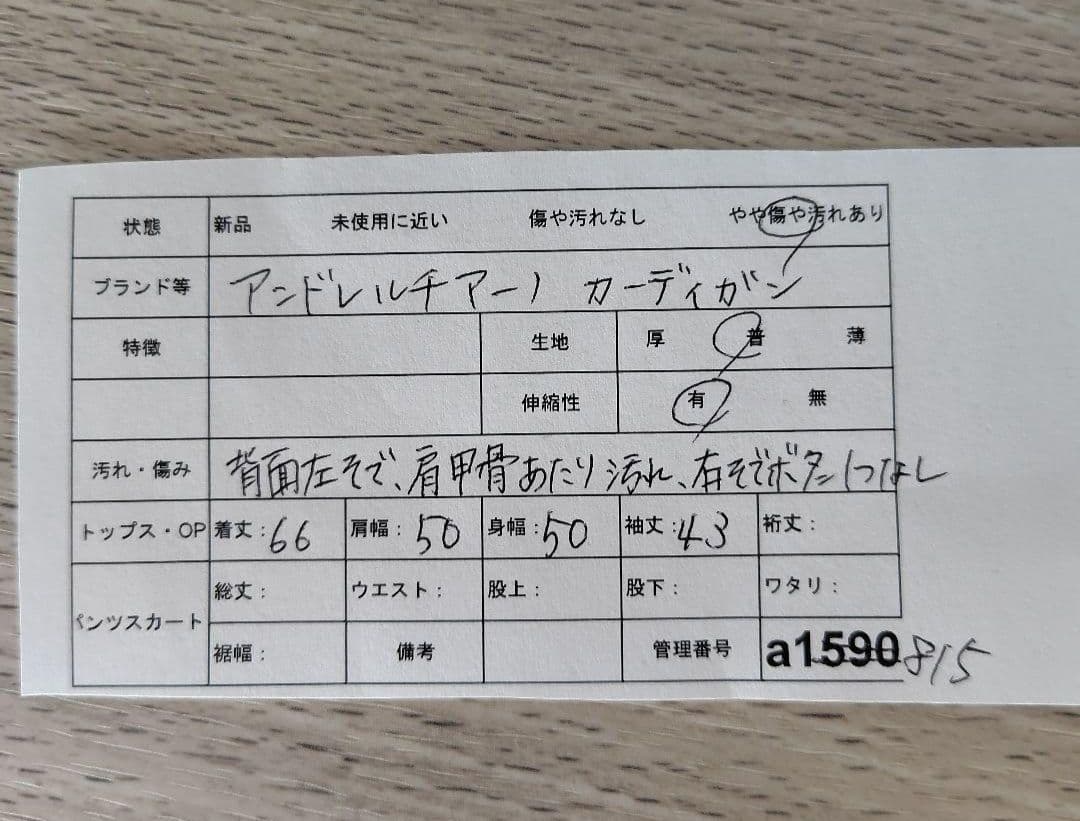 状態 新品 未使用に近い 傷や汚れなし やや傷や汚れあり
ブランド等 アンドレルチアーノ カーディガン
特徴 生地 厚 普 薄
伸縮性 有 無
汚れ・傷み 背面左そで、肩甲骨あたり汚れ、右そでボタン1つなし
トップス・OP 着丈:66 肩幅:50 身幅:50 袖丈:43 裄丈:
パンツスカート 総丈: ウエスト: 股上: 股下: ワタリ:
裾幅: 備考 管理番号 a1590 815